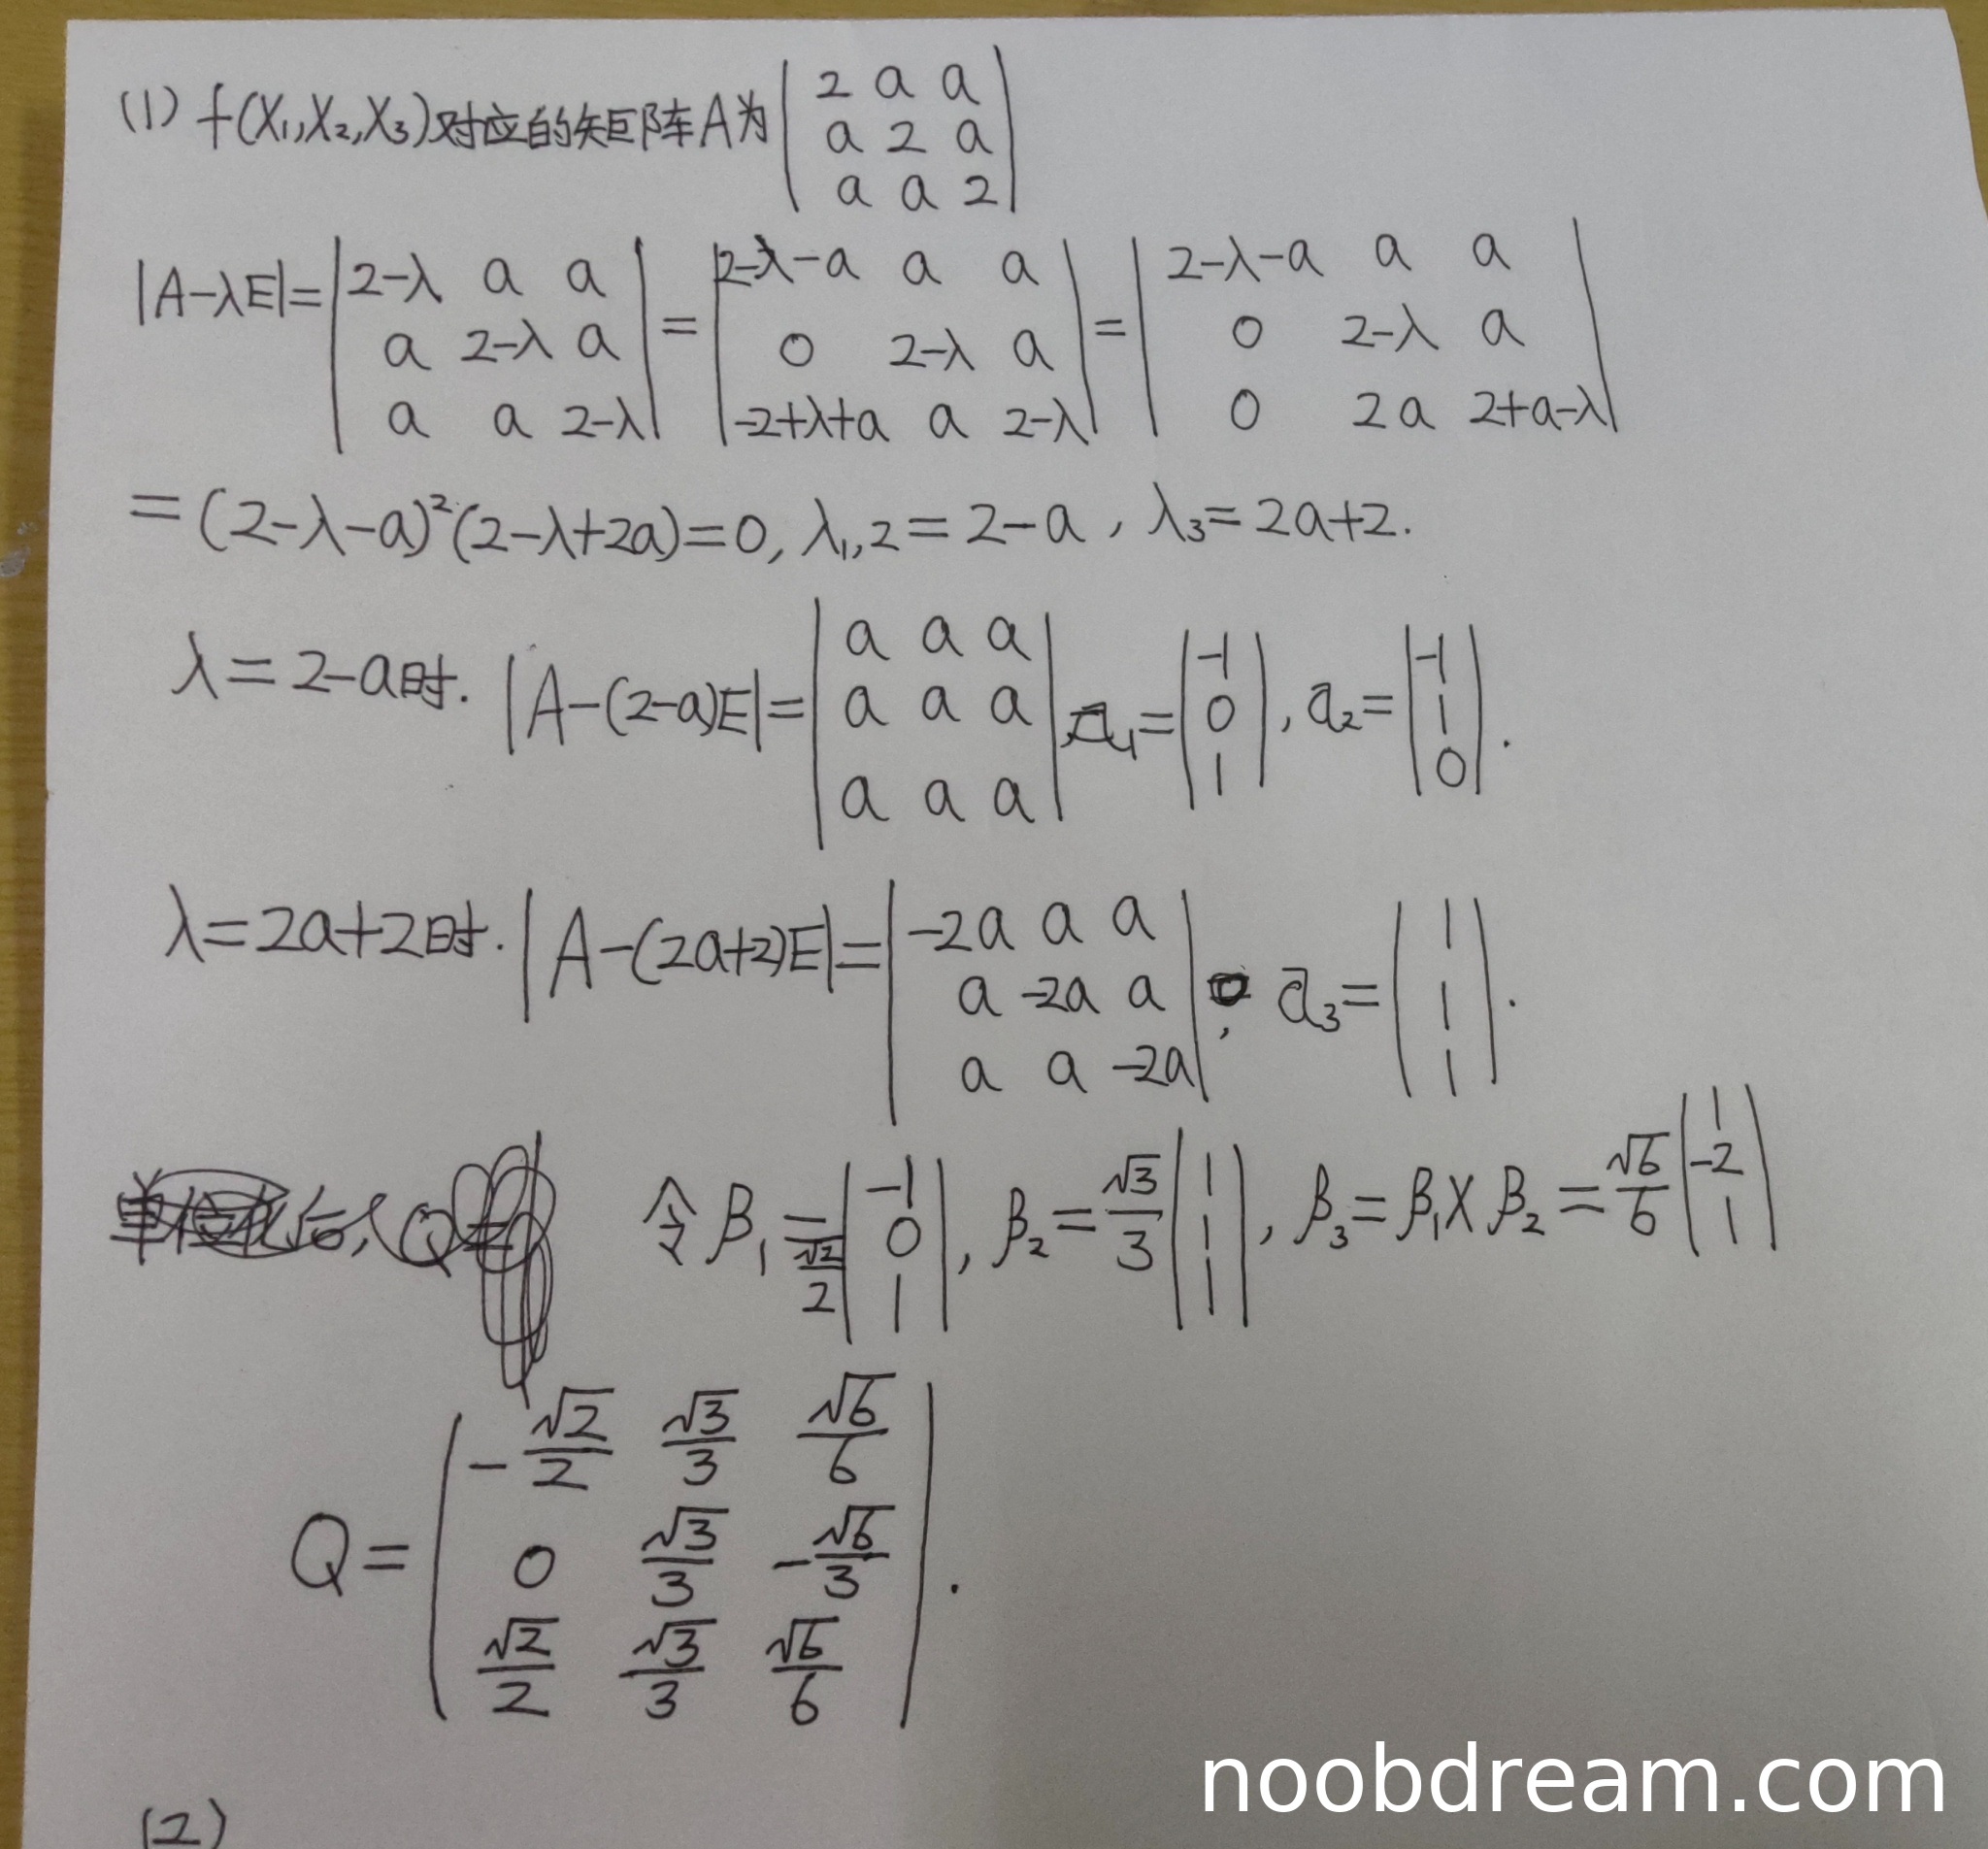 (1) f(X₁,X₂,X₃)对应的矩阵A为 | 2 a a ; a 2 a ; a a 2 |
|A-λE|= | 2-λ a a ; a 2-λ a ; a a 2-λ | = | 2-λ-a a a ; 0 2-λ a ; -2+λ+a a 2-λ | = | 2-λ-a a a ; 0 2-λ a ; 0 2a 2+a-λ |
=(2-λ-a)²(2-λ+2a)=0, λ₁,₂=2-a, λ₃=2a+2.
λ=2-a时. |A-(2-a)E|= | a a a ; a a a ; a a a |, a₁= | -1 ; 0 ; 1 |, a₂= | -1 ; 1 ; 0 |.
λ=2a+2时. |A-(2a+2)E|= | -2a a a ; a -2a a ; a a -2a |, a₃= | 1 ; 1 ; 1 |.
令β₁=√2/2 | -1 ; 0 ; 1 |, β₂=√3/3 | 1 ; 1 ; 1 |, β₃=β₁×β₂=√6/6 | 1 ; -2 ; 1 |
Q= ( -√2/2 √3/3 √6/6 ; 0 √3/3 -√6/3 ; √2/2 √3/3 √6/6 ).
(2)
noobdream.com